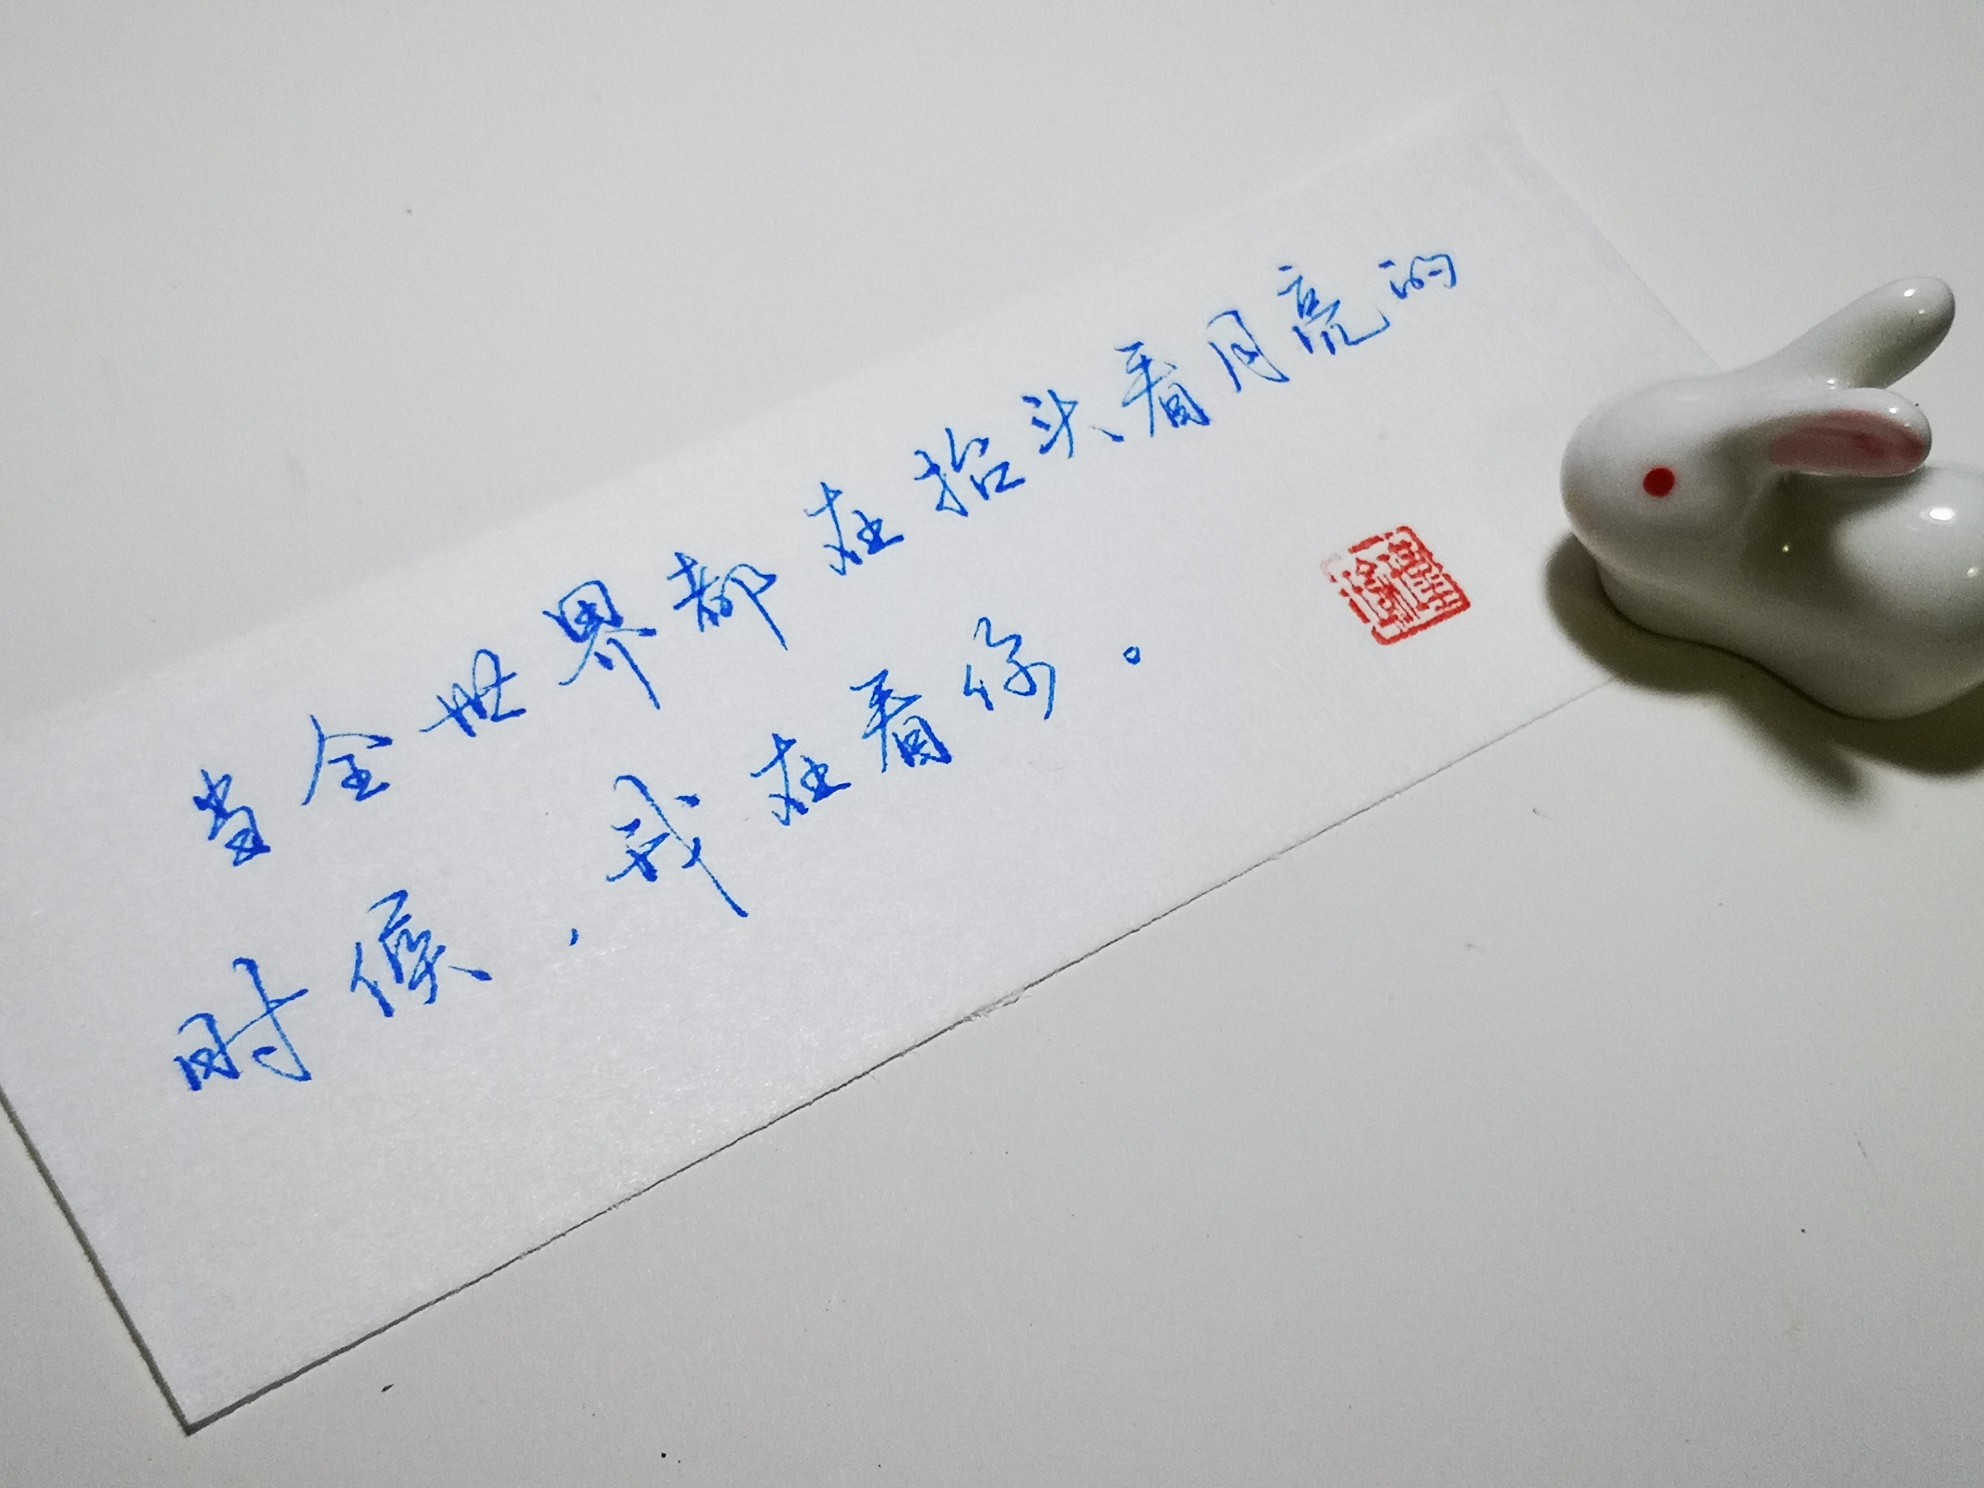 当全世界都在抬头看月亮的
时候，我在看你。